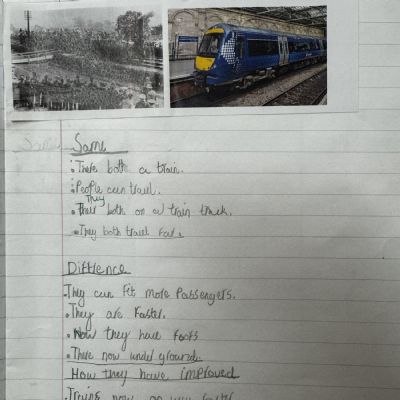 Same
Same
• There both a train.
• People can travel.
They
• Their both on a train track.
• They both travel far.
Diffrence
• They can fit more Passengers.
• They are Faster.
• Now they have roofs
• There now under ground.
How they have improved
Trains now go way faster